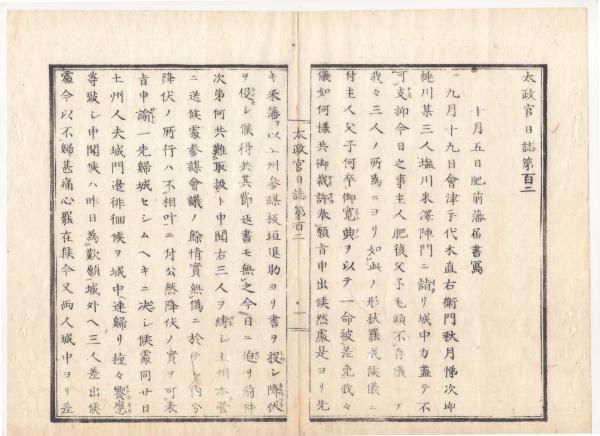 太政官日誌第百二
十月五日肥前藩届書寫
一九月十九日會津手代木直右衛門秋月悌次郎
桃川某三人塩川米澤陣門ニ詣リ城中力盡テ不
可支抑今日之事主人肥後父子毛頭不肯儀ニテ
我々三人ノ所為ニヨリ如此ノ形状罷成候儀ニ
付主人父子何卒御寛典ヲ以テ一命被差免我々
儀如何様共御裁許奉願旨申出候然處是ヨリ先
キ米藩ヲ以土州参謀板垣退助ヨリ書ヲ投シ降伏
ヲ促シ候得共其節返書モ無之今日ニ迫リ前件
次第何共難取扱ト申聞右三人ヲ縛シ土州本営
ニ送候處参謀會議ノ餘情實無偽ニ於テハ内分
降伏ノ所行ハ不相叶ニ付公然降伏ノ實ヲ可表
旨申諭一先帰城セシムヘキニ決シ候處同廿日
土州人夫城門邉徘徊候ヲ城中連歸リ種々饗應
等致シ申聞候ハ昨日為歎願城外ヘ三人差出候
處今以不歸甚痛心罷在候今又両人城中ヨリ差
太政官日誌第百二
一